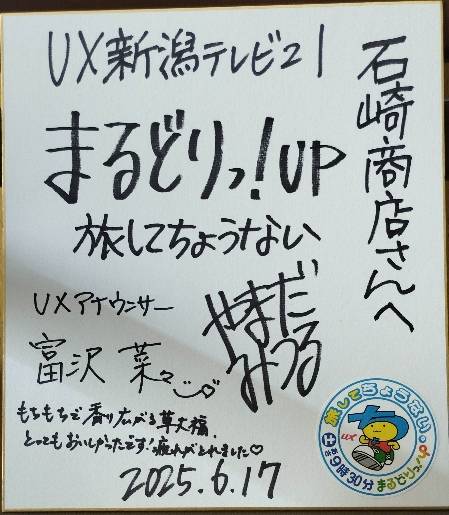 石崎商店さんへ
UX新潟テレビ21
まるどりっ!UP
旅してちょうない
UXアナウンサー
富沢 菜々
やまだ
みつる
もちもちで香り広がる草大福、
とってもおいしかったです!疲れがとれました♡
2025.6.17
旅してちょうない。
UX
土 あさ9時30分
まるどりっ!